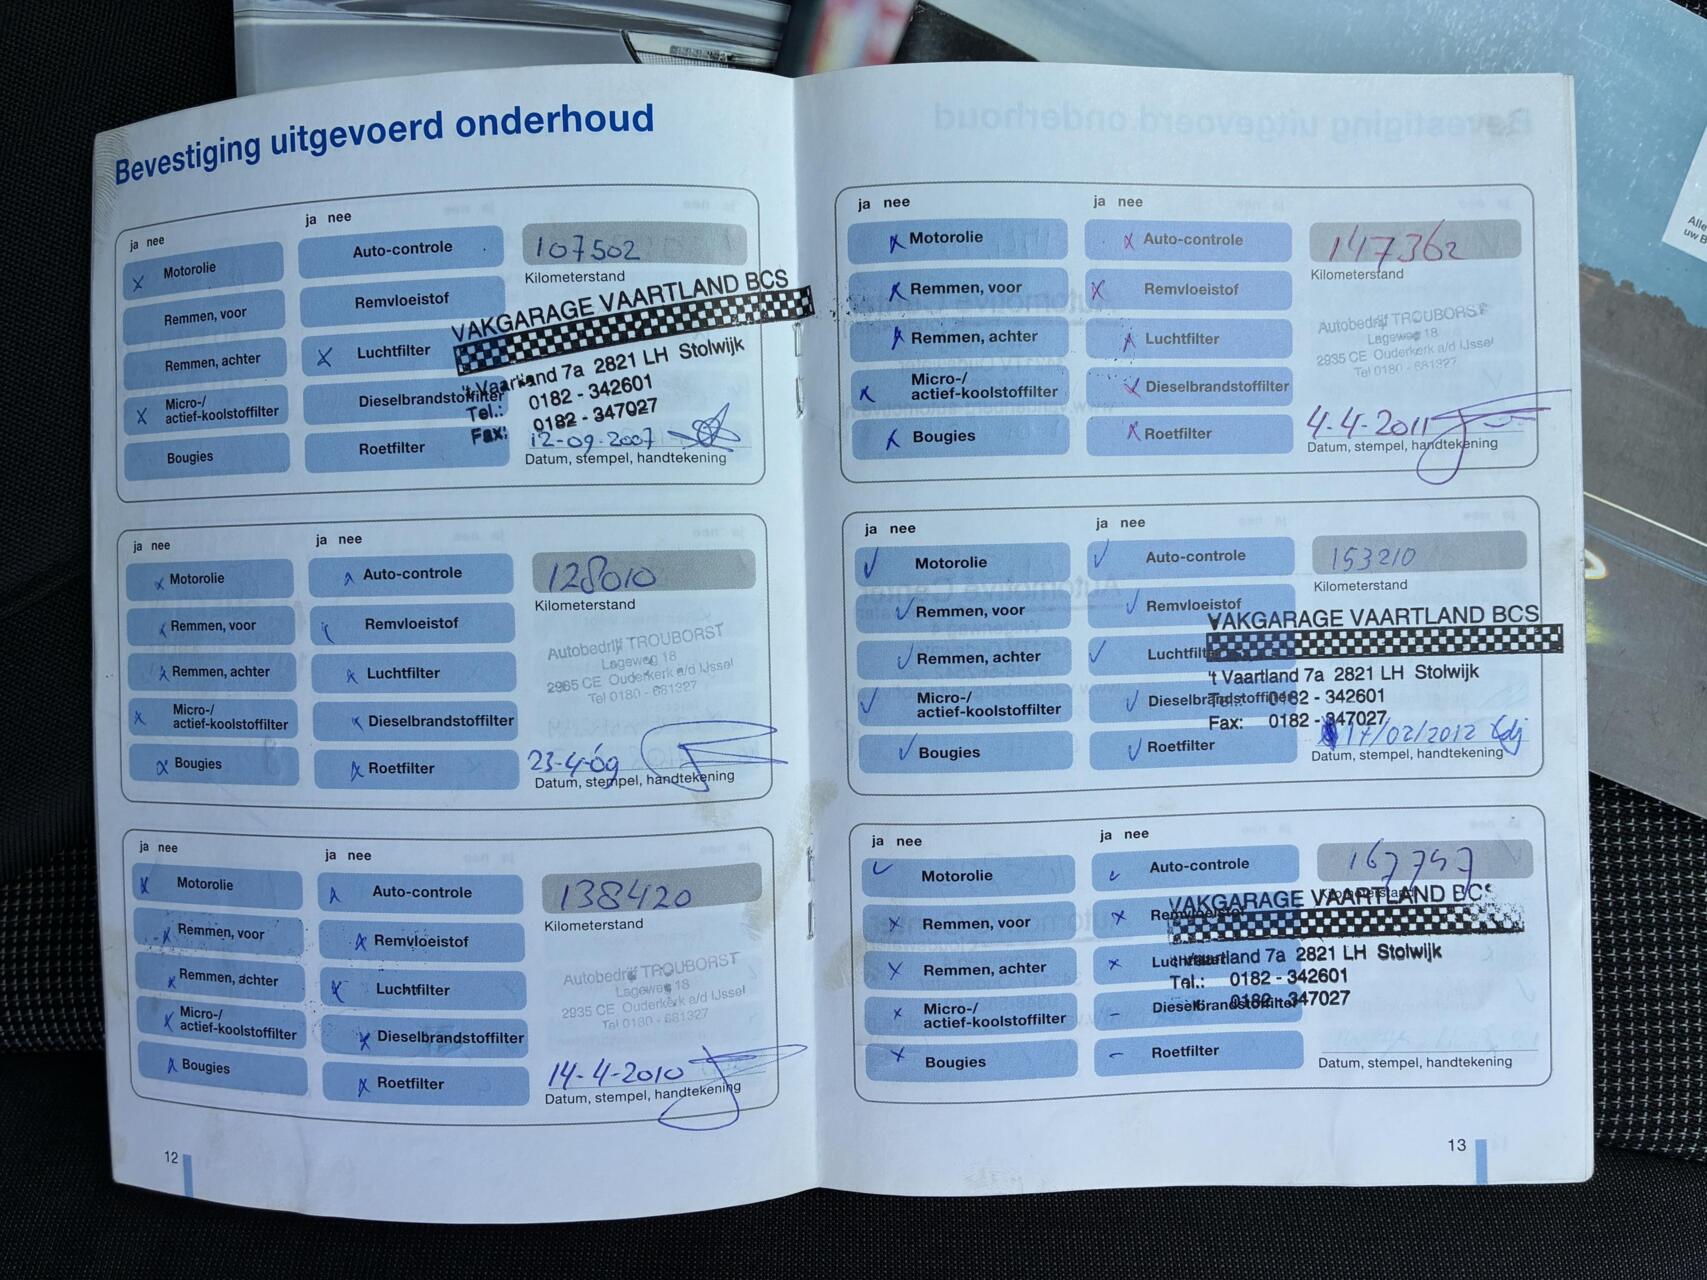 Bevestiging uitgevoerd onderhoud
ja nee
ja nee
Motorolie
Auto-controle
107502
Kilometerstand
Remmen, voor
Remvloeistof
VAKGARAGE VAARTLAND BCS
Remmen, achter
Luchtfilter
't Vaartland 7a 2821 LH Stolwijk
Micro-/
actief-koolstoffilter
Dieselbrandstoffilter
Tel.: 0182 - 342601
Fax: 0182 - 347027
Bougies
Roetfilter
12-09-2007
Datum, stempel, handtekening
ja nee
ja nee
Motorolie
Auto-controle
128010
Kilometerstand
Remmen, voor
Remvloeistof
Autobedrijf TROUBORST
Lageweg 18
Remmen, achter
Luchtfilter
2935 CE Ouderkerk a/d IJssel
Tel 0180 - 681327
Micro-/
actief-koolstoffilter
Dieselbrandstoffilter
Bougies
Roetfilter
23-4-09
Datum, stempel, handtekening
ja nee
ja nee
Motorolie
Auto-controle
138420
Kilometerstand
Remmen, voor
Remvloeistof
Autobedrijf TROUBORST
Lageweg 18
Remmen, achter
Luchtfilter
2935 CE Ouderkerk a/d IJssel
Tel 0180 - 681327
Micro-/
actief-koolstoffilter
Dieselbrandstoffilter
Bougies
Roetfilter
14-4-2010
Datum, stempel, handtekening
12
ja nee
ja nee
Motorolie
Auto-controle
147362
Kilometerstand
Remmen, voor
Remvloeistof
Autobedrijf TROUBORST
Lageweg 18
Remmen, achter
Luchtfilter
2935 CE Ouderkerk a/d IJssel
Tel 0180 - 681327
Micro-/
actief-koolstoffilter
Dieselbrandstoffilter
Bougies
Roetfilter
4-4-2011
Datum, stempel, handtekening
ja nee
ja nee
Motorolie
Auto-controle
153210
Kilometerstand
Remmen, voor
Remvloeistof
VAKGARAGE VAARTLAND BCS
Remmen, achter
Luchtfilter
't Vaartland 7a 2821 LH Stolwijk
Micro-/
actief-koolstoffilter
Dieselbrandstoffilter
Tel.: 0182 - 342601
Fax: 0182 - 347027
Bougies
Roetfilter
17/02/2012
Datum, stempel, handtekening
ja nee
ja nee
Motorolie
Auto-controle
167757
Kilometerstand
Remmen, voor
Remvloeistof
VAKGARAGE VAARTLAND BCS
Remmen, achter
Luchtfilter
't Vaartland 7a 2821 LH Stolwijk
Micro-/
actief-koolstoffilter
Dieselbrandstoffilter
Tel.: 0182 - 342601
0182 - 347027
Bougies
Roetfilter
Datum, stempel, handtekening
13
Alle
uw B